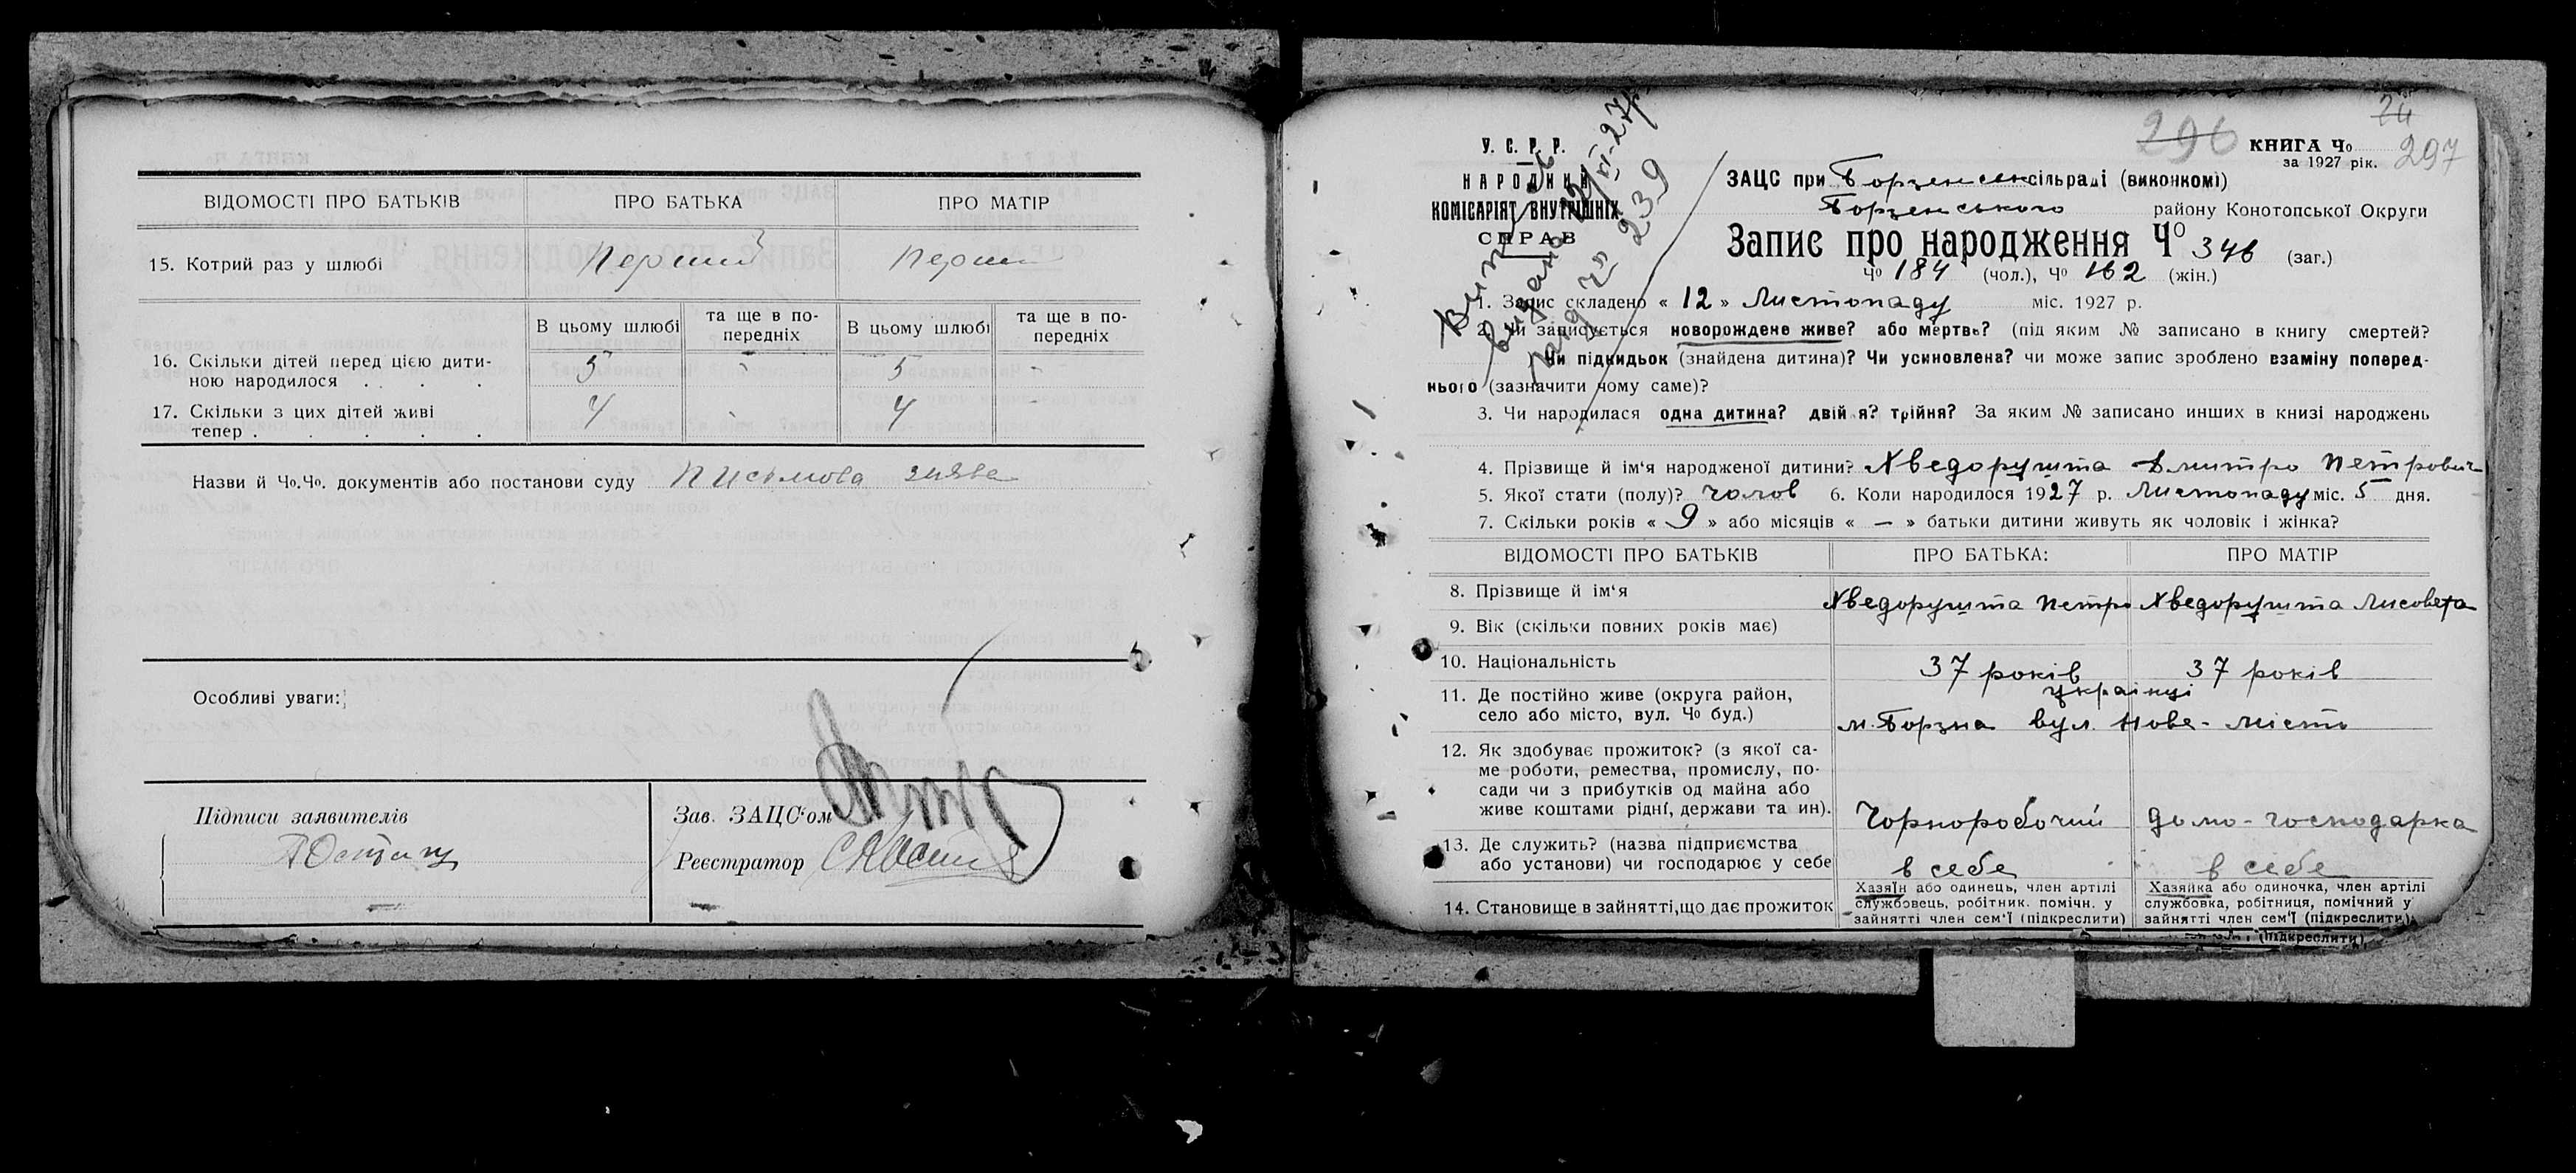 ВІДОМОСТІ ПРО БАТЬКІВ
ПРО БАТЬКА
ПРО МАТІР
15. Котрий раз у шлюбі
Перший
Перши
В цьому шлюбі
та ще в по-
передніх
В цьому шлюбі
та ще в по-
передніх
16. Скільки дітей перед цією дити-
ною народилося . . . .
5
-
5
-
17. Скільки з цих дітей живі
тепер . . . . .
4
-
4
-
Назви й Чо.Чо. документів або постанови суду Письмова заява
Особливі уваги:
Підписи заявителів
Зав. ЗАЦС'ом
Реєстратор
КНИГА Чо 24
за 1927 рік.
296
297
У. С. Р. Р.
НАРОДНИЙ
КОМІСАРІЯТ ВНУТРІШНІХ
СПРАВ
видано 12/XI-27р.
під Ч° 239
ЗАЦС при Борзенськ сільраді (виконкомі)
Борзенського району Конотопської Округи
Запис про народження Чо 346 (заг.)
Чо 184 (чол.), Чо 162 (жін.)
1. Запис складено « 12 » Листопаду міс. 1927 р.
2. Чи записується новорождене живе? або мертве? (під яким № записано в книгу смертей?
Чи підкидьок (знайдена дитина)? Чи усиновлена? чи може запис зроблено взаміну поперед-
нього (зазначити чому саме)?
3. Чи народилася одна дитина? двійня? трійня? За яким № записано инших в книзі народжень
4. Прізвище й ім'я народженої дитини? Хведорушта Дмитро Петрович
5. Якої стати (полу)? чолов 6. Коли народилося 1927 р. Листопаду міс. 5 дня.
7. Скільки років « 9 » або місяців « — » батьки дитини живуть як чоловік і жінка?
ВІДОМОСТІ ПРО БАТЬКІВ
ПРО БАТЬКА:
ПРО МАТІР
8. Прізвище й ім'я
Хведорушта Петро
Хведорушта Лисовета
9. Вік (скільки повних років має)
10. Національність
37 років
37 років
українці
11. Де постійно живе (округа район,
село або місто, вул. Чо буд.)
м. Борзна вул. Нове-місто
12. Як здобуває прожиток? (з якої са-
ме роботи, ремества, промислу, по-
сади чи з прибутків од майна або
живе коштами рідні, держави та ин).
Чорноробочий
домо-господарка
13. Де служить? (назва підприємства
або установи) чи господарює у себе
в себе
в себе
14. Становище в зайнятті, що дає прожиток
Хазяїн або одинець, член артілі
службовець, робітник. помічн. у
зайнятті член сем'ї (підкреслити)
Хазяйка або одиночка, член артілі
службовка, робітниця, помічний у
зайнятті член сем'ї (підкреслити)
(підкреслити)